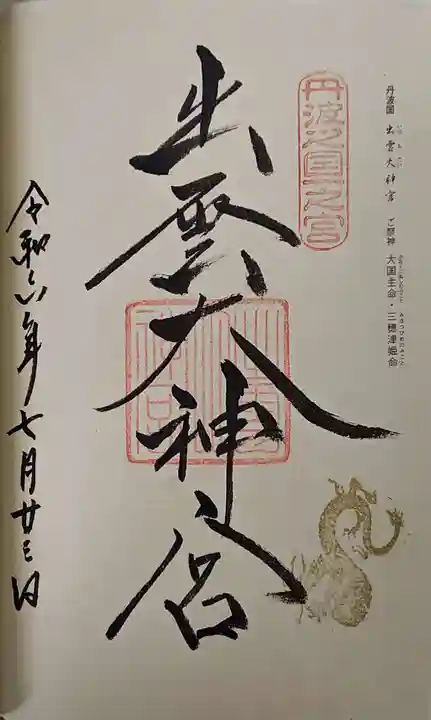 丹波国 出雲大神宮 ご祭神 大国主命・三穂津姫命
丹波之国一之宮
出雲大神宮
令和六年七月廿三日